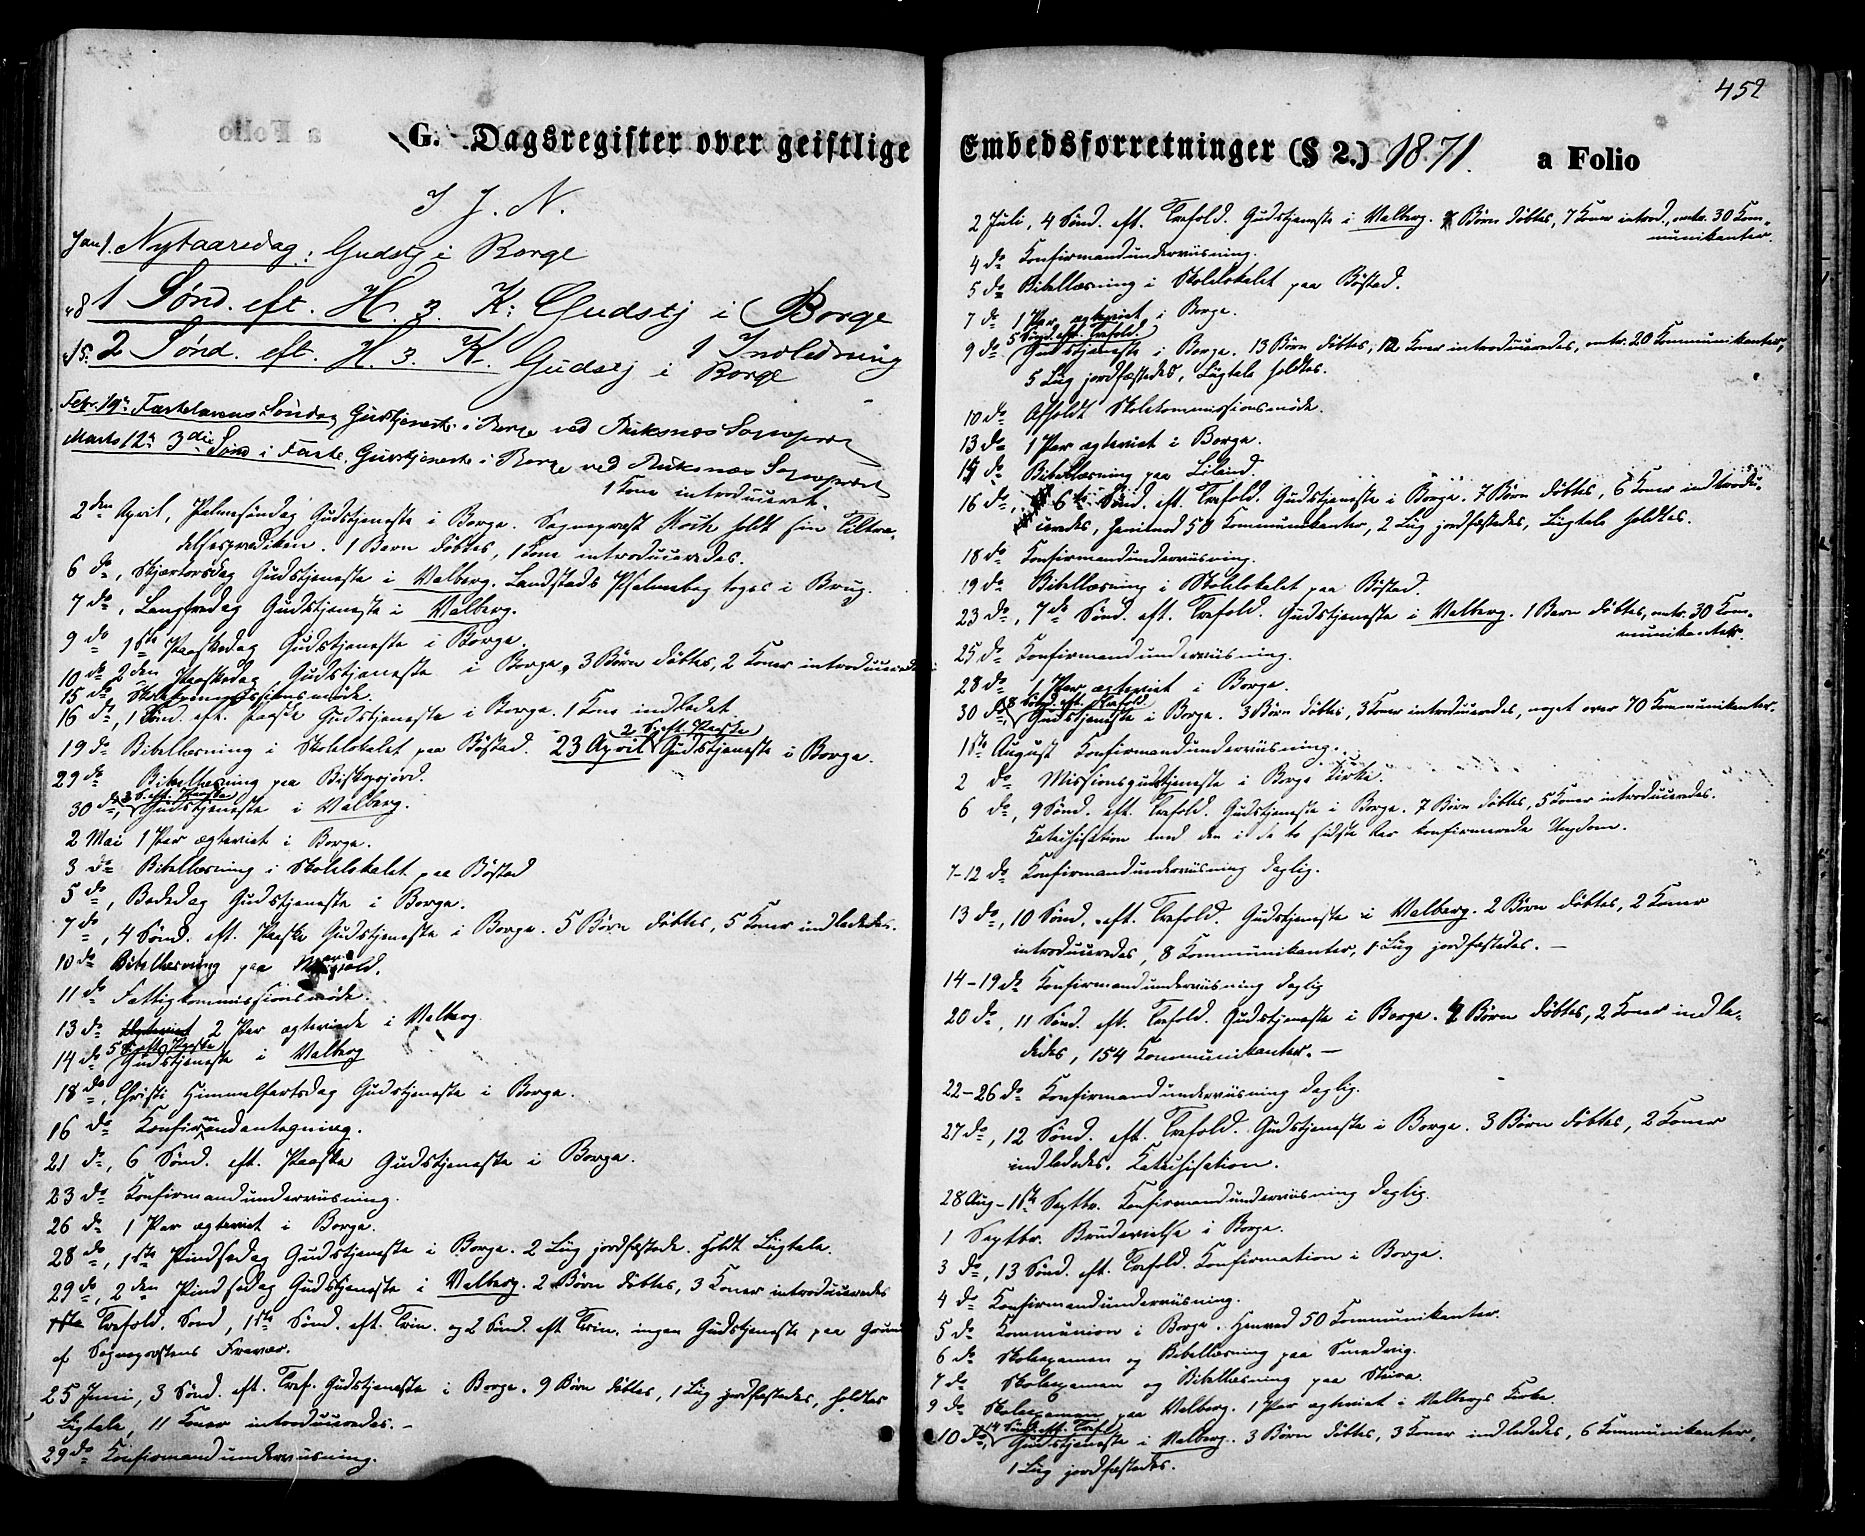 G. Dagsregister over geistlige
I J. N.
Jan 1. Nytaarsdag: Gudstj i Borge
" 8 1 Sønd. eft. H. 3. K: Gudstj i Borge
" 15. 2 Sønd. eft. H. 3. K. Gudstj i Borge 1 Indledning
Febr. 19de Fastelavns Søndag Gudstjeneste i Borge ved Buksnæs Sognepræst
Marts 12te 3die Sønd i Faste. Gudstjeneste i Borge ved Buksnæs Sognepræst
1 Kone introduceret.
2den April, Palmesøndag Gudstjeneste i Borge. Sognepræst Koch holdt sin Tiltræ-
delsesprædiken. 1 Barn døbtes, 1 Kone introduceredes.
6 do, Skjærtorsdag Gudstjeneste i Valberg. Landstads Psalmebog toges i Brug.
7 do, Langfredag Gudstjeneste i Valberg.
9 do 1ste Paaskedag Gudstjeneste i Borge.
10 do 2den Paaskedag Gudstjeneste i Borge, 3 Børn døbtes, 2 Koner introduceredes
15 do, Skolekommissionsmøde.
16 do, 1 Sønd. eft. Paaske Gudstjeneste i Borge. 1 Kone indledet
19 do Bibellæsning i Skolelokalet paa Bøstad. 23 April 2 S. eft. Paaske Gudstjeneste i Borge.
29 do Bibellæsning paa
30 do, 3 S. eft. Paaske Gudstjeneste i Valberg.
2 Mai 1 Par ægteviet i Borge.
3 do Bibellæsning i Skolelokalet paa Bøstad
5 do, Bededag Gudstjeneste i Borge.
7 do, 4 Sønd. eft. Paaske Gudstjeneste i Borge. 5 Børn døbtes, 5 Koner indledede.
10 do Bibellæsning paa
11 do Fattigkommissionsmøde.
13 do Ægteviet 2 Par ægteviede i Valberg
14 do 5 S. eft. Paaske Gudstjeneste i Valberg
18 do, Christi Himmelfartsdag Gudstjeneste i Borge.
16 do Konfirmandantegning.
21 do, 6 Sønd. eft. Paaske Gudstjeneste i Borge.
23 do Konfirmandundervisning.
26 do 1 Par ægteviet i Borge.
28 do, 1ste Pindsedag Gudstjeneste i Borge. 2 Lig jordfæstede. Holdt Ligtale.
29 do, 2den Pindsedag Gudstjeneste i Valberg. 2 Børn døbtes, 3 Koner introduceredes
1ste Trefold. Sond, 1ste Sønd. eft. Trin. og 2 Sønd. eft Trin. ingen Gudstjeneste paa Grund
af Sognepræstens Fravær.
25 Juni, 3 Sønd. eft. Tref. Gudstjeneste i Borge. 9 Børn døbtes, 1 Lig jordfæstedes, holdtes
Ligtale, 11 Koner introduceredes. –
29 do Konfirmandundervisning.
452
Embedsforretninger (§ 2.) 1871. a Folio
2 Juli, 4 Sønd. eft. Trefold. Gudstjeneste i Valberg. Børn døbtes, 7 Koner introd., omtr. 30 Kom-
munikanter.
4 do Konfirmandundervisning.
5 do Bibellæsning i Skolelokalet paa Bøstad.
7 do 1 Par ægteviet i Borge.
9 do 5 Sønd. eft. Trefold. Gudstjeneste i Borge. 13 Børn døbtes, 12 Koner introduceredes, omtr. 20 Kommunikanter,
5 Lig jordfæstedes, Ligtale holdtes.
10 do Afholdt Skolekommissionsmøde.
13 do 1 Par ægteviet i Borge.
do Bibellæsning paa Liland.
16 do, 6te Sønd. eft. Trefold. Gudstjeneste i Borge. 7 Børn døbtes, 6 Koner introdu-
ceredes, henimod 50 Kommunikanter, 2 Lig jordfæstedes, Ligtale holdtes.
18 do Konfirmandundervisning.
19 do Bibellæsning i Skolelokalet paa Bøstad.
23 do, 7de Sønd. eft. Trefold. Gudstjeneste i Valberg. 1 Barn døbtes, omtr. 30 Kom-
munikanter.
25 do Konfirmandundervisning.
28 do 1 Par ægteviet i Borge.
30 do, 8 Sønd. eft. Trefold. Gudstjeneste i Borge. 3 Børn døbtes, 3 Koner introduceredes, noget over 70 Kommunikanter.
1ste August Konfirmandundervisning.
2 do Missionsgudstjeneste i Borge Kirke.
6 do, 9 Sønd. eft. Trefold. Gudstjeneste i Borge. 7 Børn døbtes, 5 Koner introduceredes.
Katechisation med den i de to sidste Aar konfirmerede Ungdom.
7-12 do Konfirmandundervisning daglig.
13 do, 10 Sønd. eft. Trefold. Gudstjeneste i Valberg. 2 Børn døbtes, 2 Koner
introduceredes, 8 Kommunikanter, 1 Lig jordfæstedes. –
14-19 do Konfirmandundervisning daglig
20 do, 11 Sønd. eft. Trefold. Gudstjeneste i Borge. Børn døbtes, 2 Koner indle-
dedes, 154 Kommunikanter. –
22-26 do Konfirmandundervisning daglig.
27 do, 12 Sønd. eft. Trefold. Gudstjeneste i Borge. 3 Børn døbtes, 2 Koner
indlededes. Katechisation.
28 Aug-1ste Septbr. Konfirmandundervisning daglig.
1 Septbr. Brudevielse i Borge.
3 do, 13 Sønd. eft. Trefold. Konfirmation i Borge.
4 do Konfirmandundervisning.
5 do Kommunion i Borge. Henved 50 Kommunikanter.
6 do Skoleexamen og Bibellæsning paa Smedvig.
7 do Skoleexamen og Bibellæsning paa
9 do Skoleexamen paa Valberg. 1 Par ægteviet i Valbergs Kirke.
10 do, 14 Sønd. eft. Tref. Gudstjeneste i Valberg. 3 Børn døbtes, 3 Koner indlededes, 6 Kommunikanter,
1 Lig jordfæstedes.